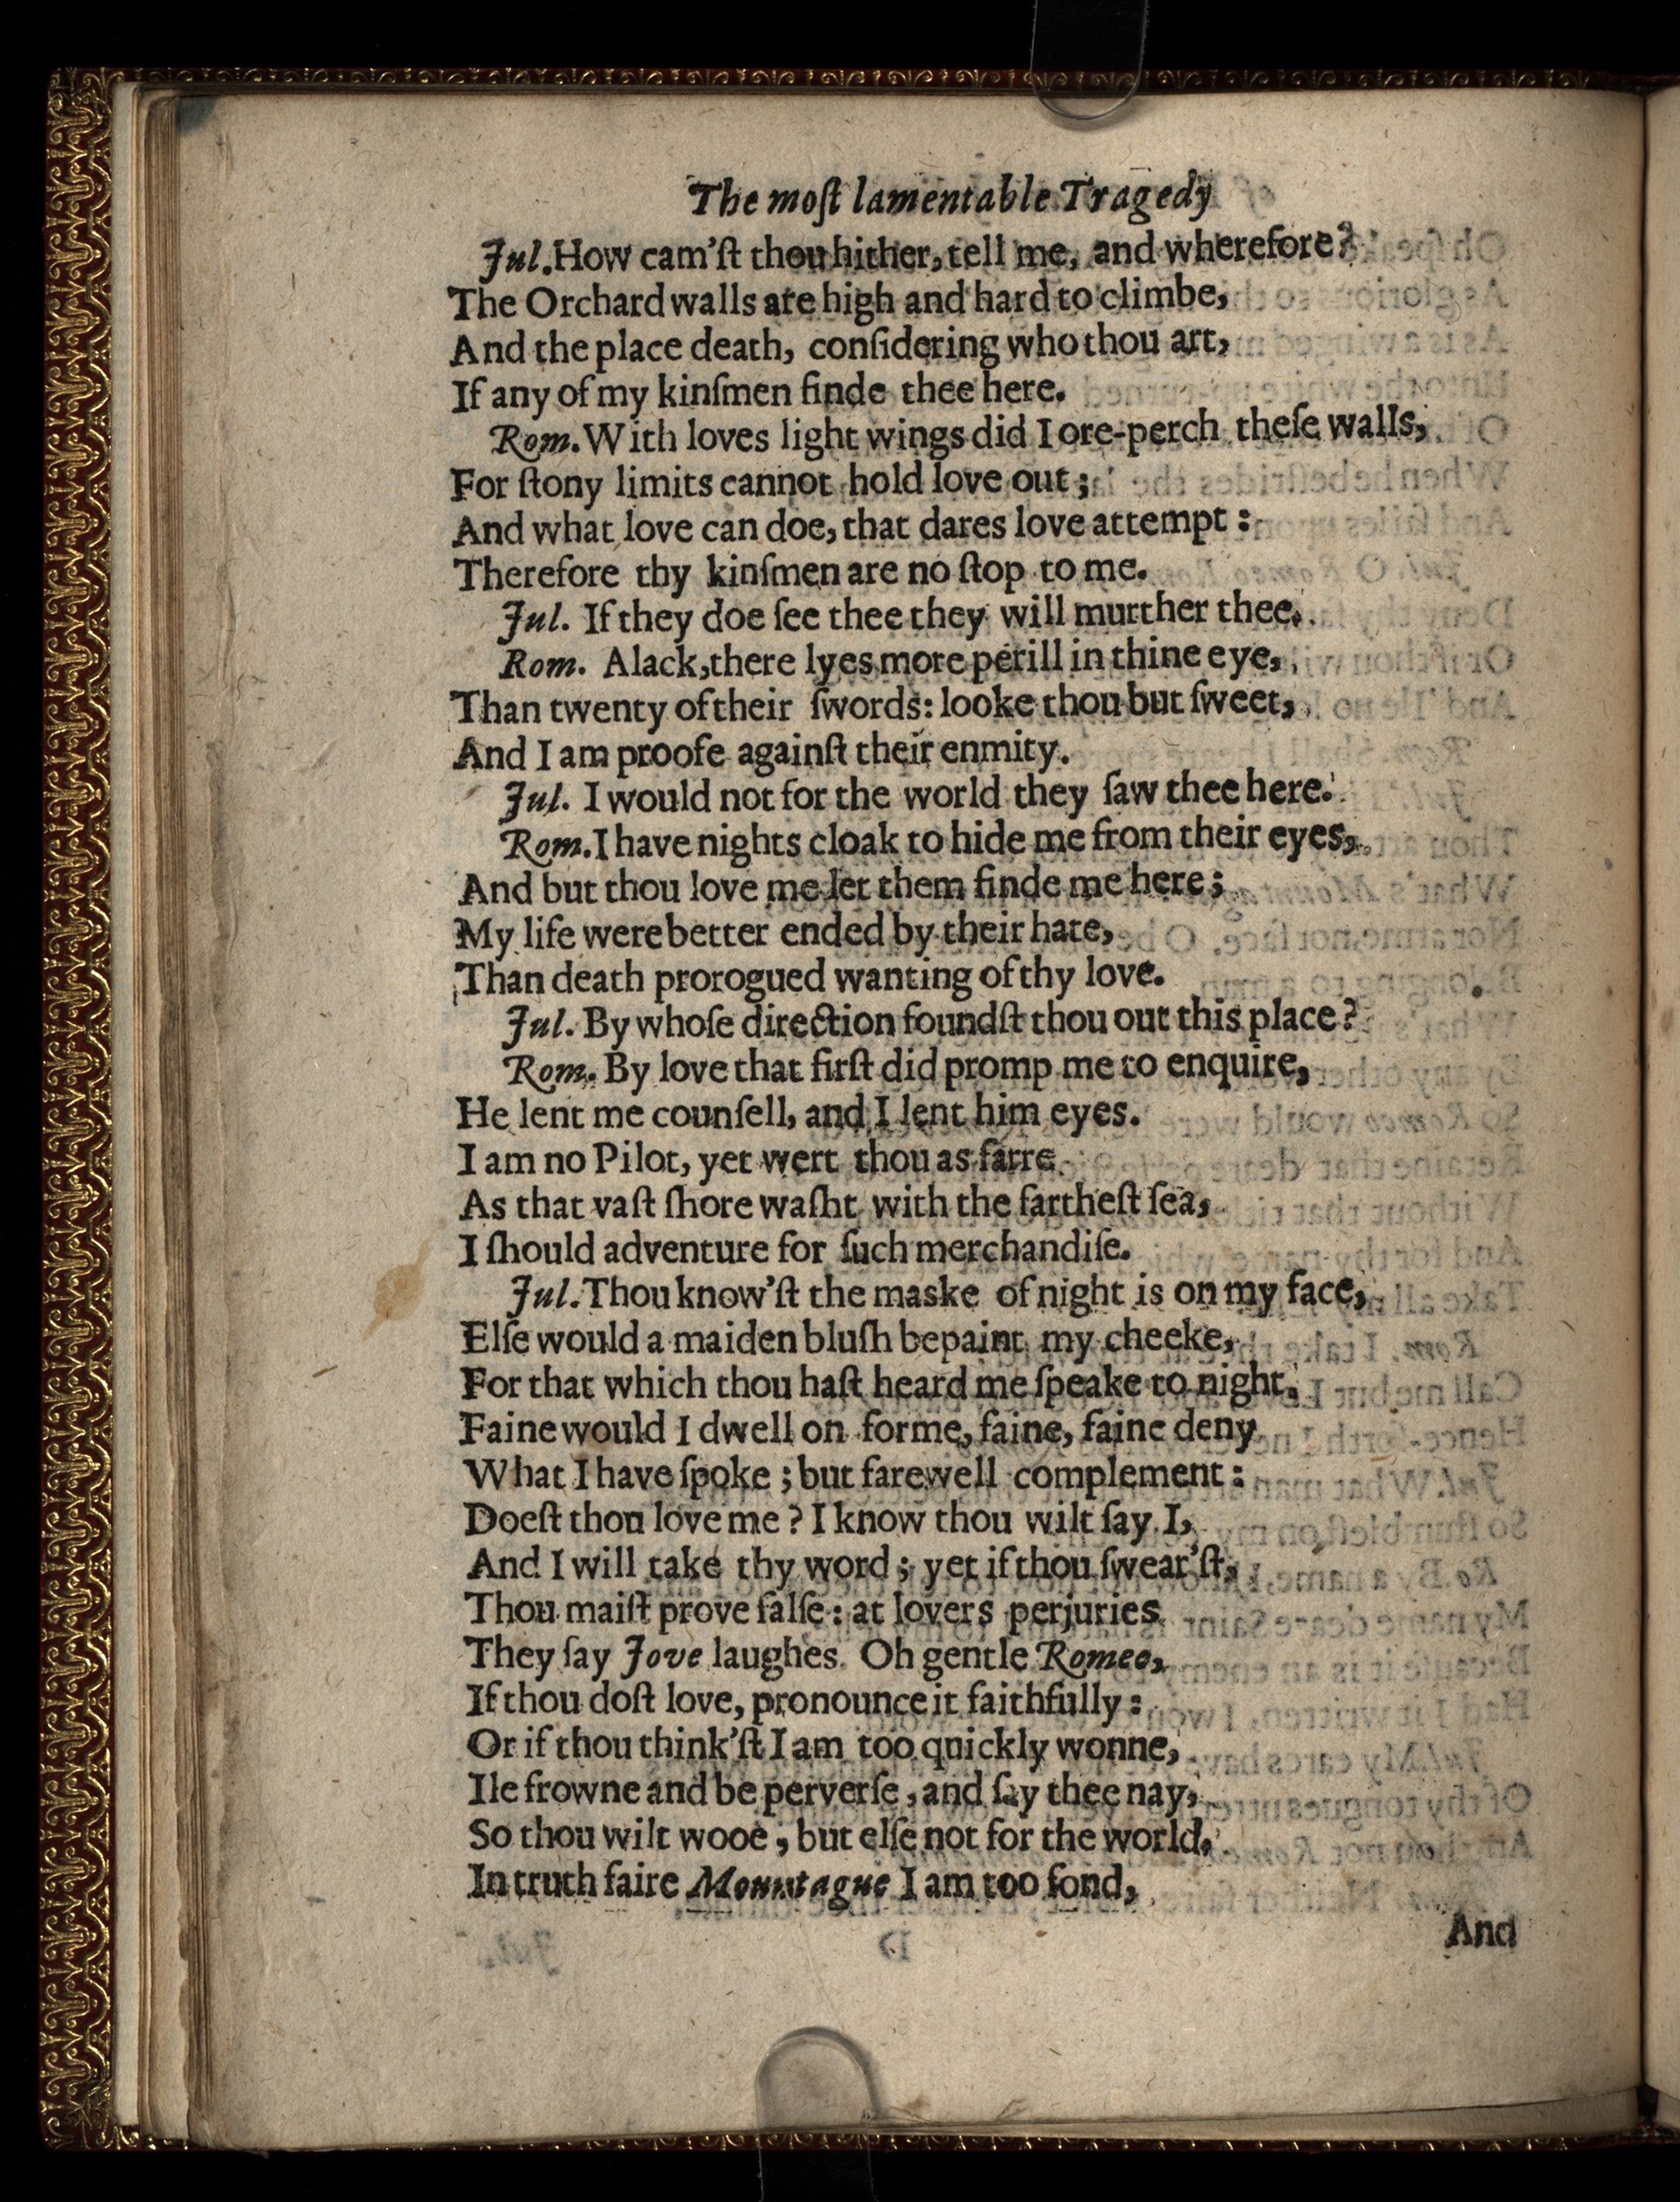 The moſt lamentable Tragedy
Jul. How cam'ſt thou hither, tell me, and wherefore?
The Orchard walls are high and hard to climbe,
And the place death, conſidering who thou art,
If any of my kinſmen finde thee here.
Rom. With loves light wings did I ore-perch theſe walls,
For ſtony limits cannot hold love out;
And what love can doe, that dares love attempt:
Therefore thy kinſmen are no ſtop to me.
Jul. If they doe ſee thee they will murther thee.
Rom. Alack, there lyes more perill in thine eye,
Than twenty of their ſwords: looke thou but ſweet,
And I am proofe againſt their enmity.
Jul. I would not for the world they ſaw thee here.
Rom. I have nights cloak to hide me from their eyes,
And but thou love me let them finde me here;
My life were better ended by their hate,
Than death prorogued wanting of thy love.
Jul. By whoſe direction foundſt thou out this place?
Rom. By love that firſt did promp me to enquire,
He lent me counſell, and I lent him eyes.
I am no Pilot, yet wert thou as farre
As that vaſt ſhore waſht with the fartheſt ſea,
I ſhould adventure for ſuch merchandiſe.
Jul. Thou know'ſt the maske of night is on my face,
Elſe would a maiden bluſh bepaint my cheeke,
For that which thou haſt heard me ſpeake to night.
Faine would I dwell on forme, faine, faine deny
What I have ſpoke; but farewell complement:
Doeſt thou love me? I know thou wilt ſay I,
And I will take thy word; yet if thou ſwear'ſt,
Thou maiſt prove falſe: at lovers perjuries
They ſay Jove laughes. Oh gentle Romeo,
If thou doſt love, pronounce it faithfully:
Or if thou think'ſt I am too quickly wonne,
Ile frowne and be perverſe, and ſay thee nay,
So thou wilt wooe; but elſe not for the world,
In truth faire Mountague I am too fond,
And